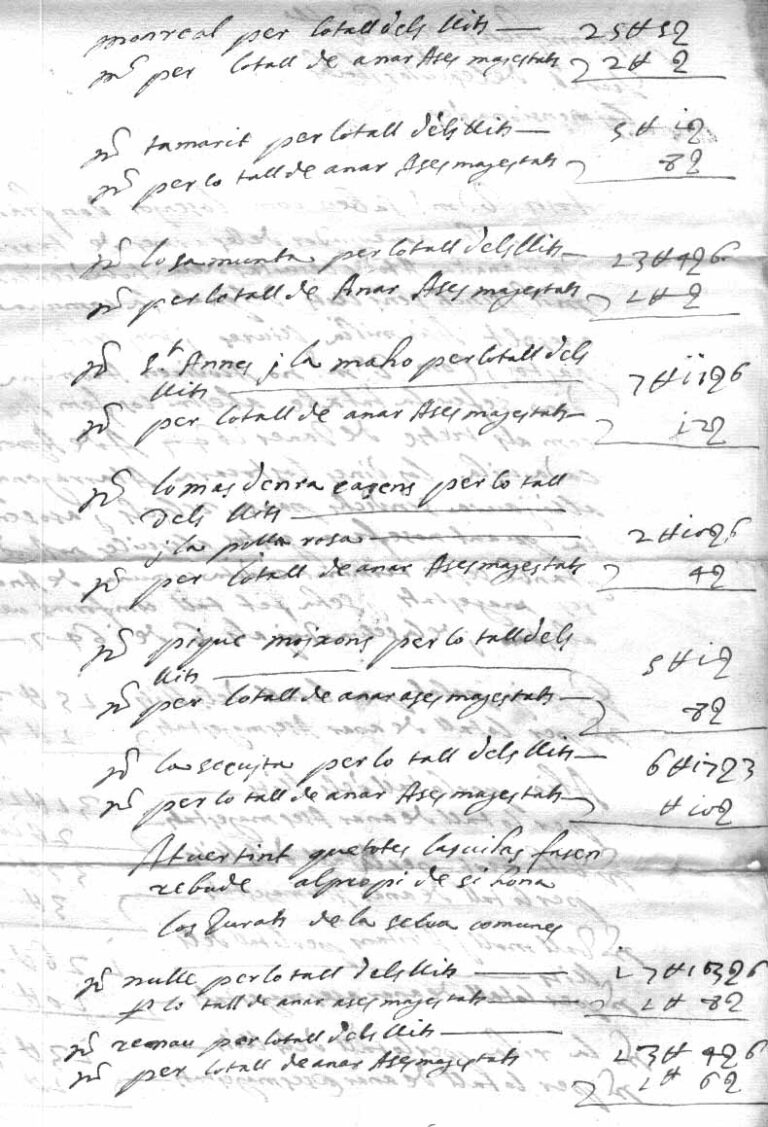 monreal per lo tall dels llits — 25 ₶ 5 ꝯ
mᵒ per lo tall de anar A ses majestats 2 ₶ ꝯ
pᵒ tamarit per lo tall dels llits — 5 ₶ i ꝯ
pᵒ per lo tall de anar A ses majestats 8 ꝯ
pᵒ lo sa munta per lo tall dels llits — 23 ₶ 4 ꝯ 6
pᵒ per lo tall de Anar A ses majestats 1 ₶ ꝯ
pᵒ S.ᵗ Annes j la maho per lo tall dels
llits — 7 ₶ ii ꝯ 6
pᵒ per lo tall de anar A ses majestats — i2 ꝯ
pᵒ lo mas denra casens per lo tall
dels llits —
j la pobla rosa — 2 ₶ i0 ꝯ 6
pᵒ per lo tall de anar A ses majestats 4 ꝯ
pᵒ pique moixons per lo tall dels
llits — 5 ₶ i ꝯ
pᵒ per lo tall de anar a ses majestats — 8 ꝯ
pᵒ la secuita per lo tall dels llits — 6 ₶ i7 ꝯ 3
pᵒ per lo tall de anar A ses majestats — ₶ i0 ꝯ
Atvertint que totes las vilas fasen
rebude al propi de si dona
los Jurats de la selva comunes
pᵒ nulle per lo tall dels llits — i7 ₶ i3 ꝯ 6
p lo tall de anar a ses majestats — 1 ₶ 8 ꝯ
pᵒ renau per lo tall dels llits — 23 ₶ 4 ꝯ 6
pᵒ per lo tall de anar A ses majestats 1 ₶ 6 ꝯ